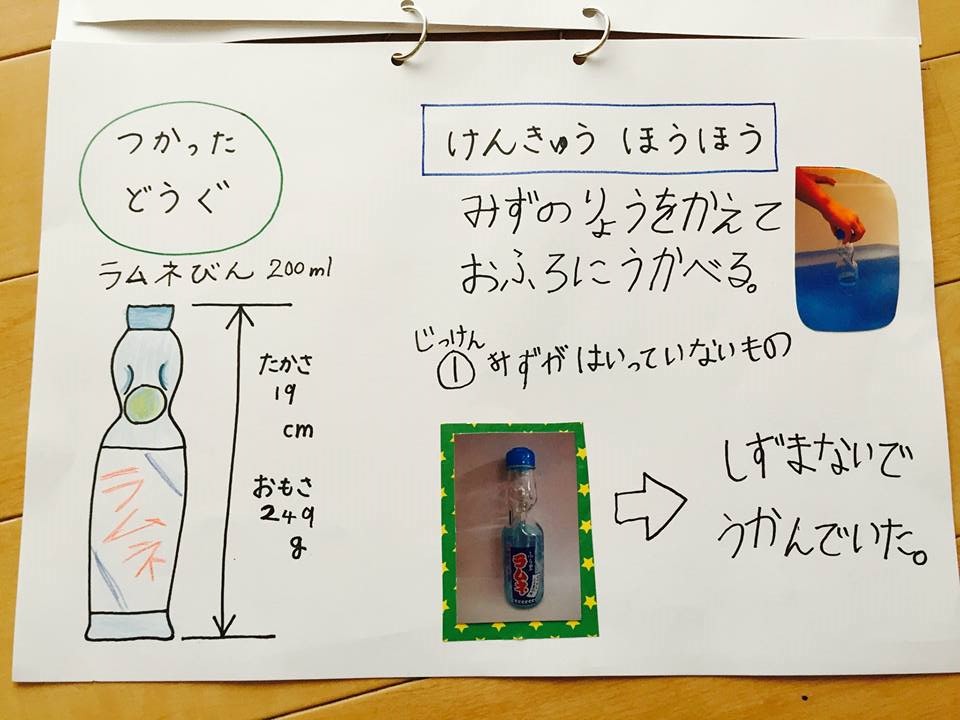 つかった
どうぐ
ラムネびん 200ml
たかさ
19
cm
おもさ
249
g
ラムネ
けんきゅう ほうほう
みずのりょうをかえて
おふろにうかべる。
じっけん
① みずがはいっていないもの
ラムネ
しずまないで
うかんでいた。